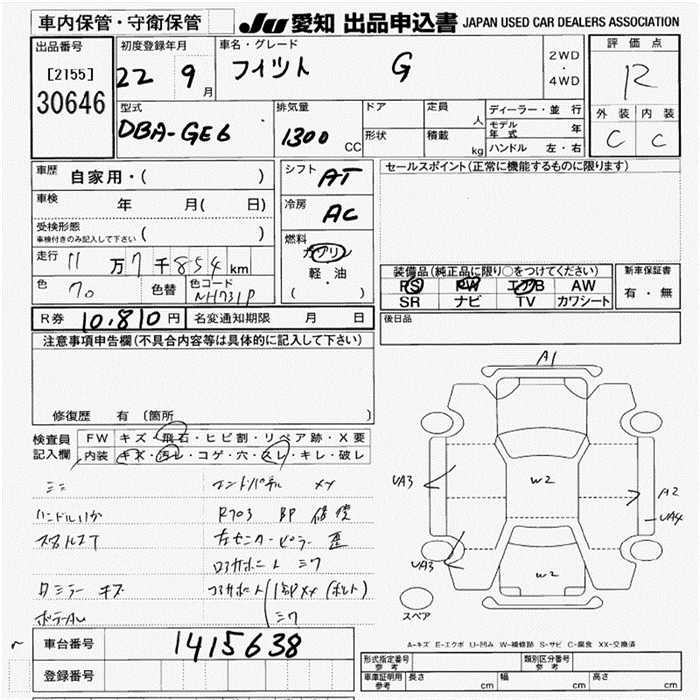 車内保管・守衛保管
JU 愛知 出品申込書 JAPAN USED CAR DEALERS ASSOCIATION
出品番号
[2155]
30646
初度登録年月
22 9月
車名・グレード
フィット G
2WD
・
4WD
評価点
R
外装 内装
C C
型式
DBA-GE6
排気量
1300 CC
ドア
形状
定員 人
積載 kg
ディーラー・並行
モデル年式 年
ハンドル 左・右
車歴 自家用・( )
車検 年 月( 日)
受検形態
車検付きのみ記入して下さい ( )
走行 11万7千854km
色 色替 色コード
NH731P
シフト AT
冷房 AC
燃料
ガソリン
軽・油
( )
セールスポイント(正常に機能するものに限ります)
装備品(純正品に限り○をつけてください)
PS PW エアB AW
SR ナビ TV カワシート
新車保証書
有・無
後日品
R券 10,810円 名変通知期限 月 日
注意事項申告欄(不具合内容等は具体的に記入して下さい)
修復歴 有(箇所 )
検査員記入欄
FW キズ・飛石・ヒビ割・リペア跡・X要
内装 キズ・汚レ・コゲ・穴・スレ・キレ・破レ
エンドパネル XX
R703 BP 修復
左センターピラー 歪
A1
UA3
W2
A2
UA4
UA3
W2
スペア
A-キズ E-エクボ U-凹み W-補修跡 S-サビ C-腐食 XX-交換済
車台番号 1415638
登録番号
形式指定番号
参考
類別区分番号
参考
車庫証明用
参考
長さ cm 幅 cm 高さ cm